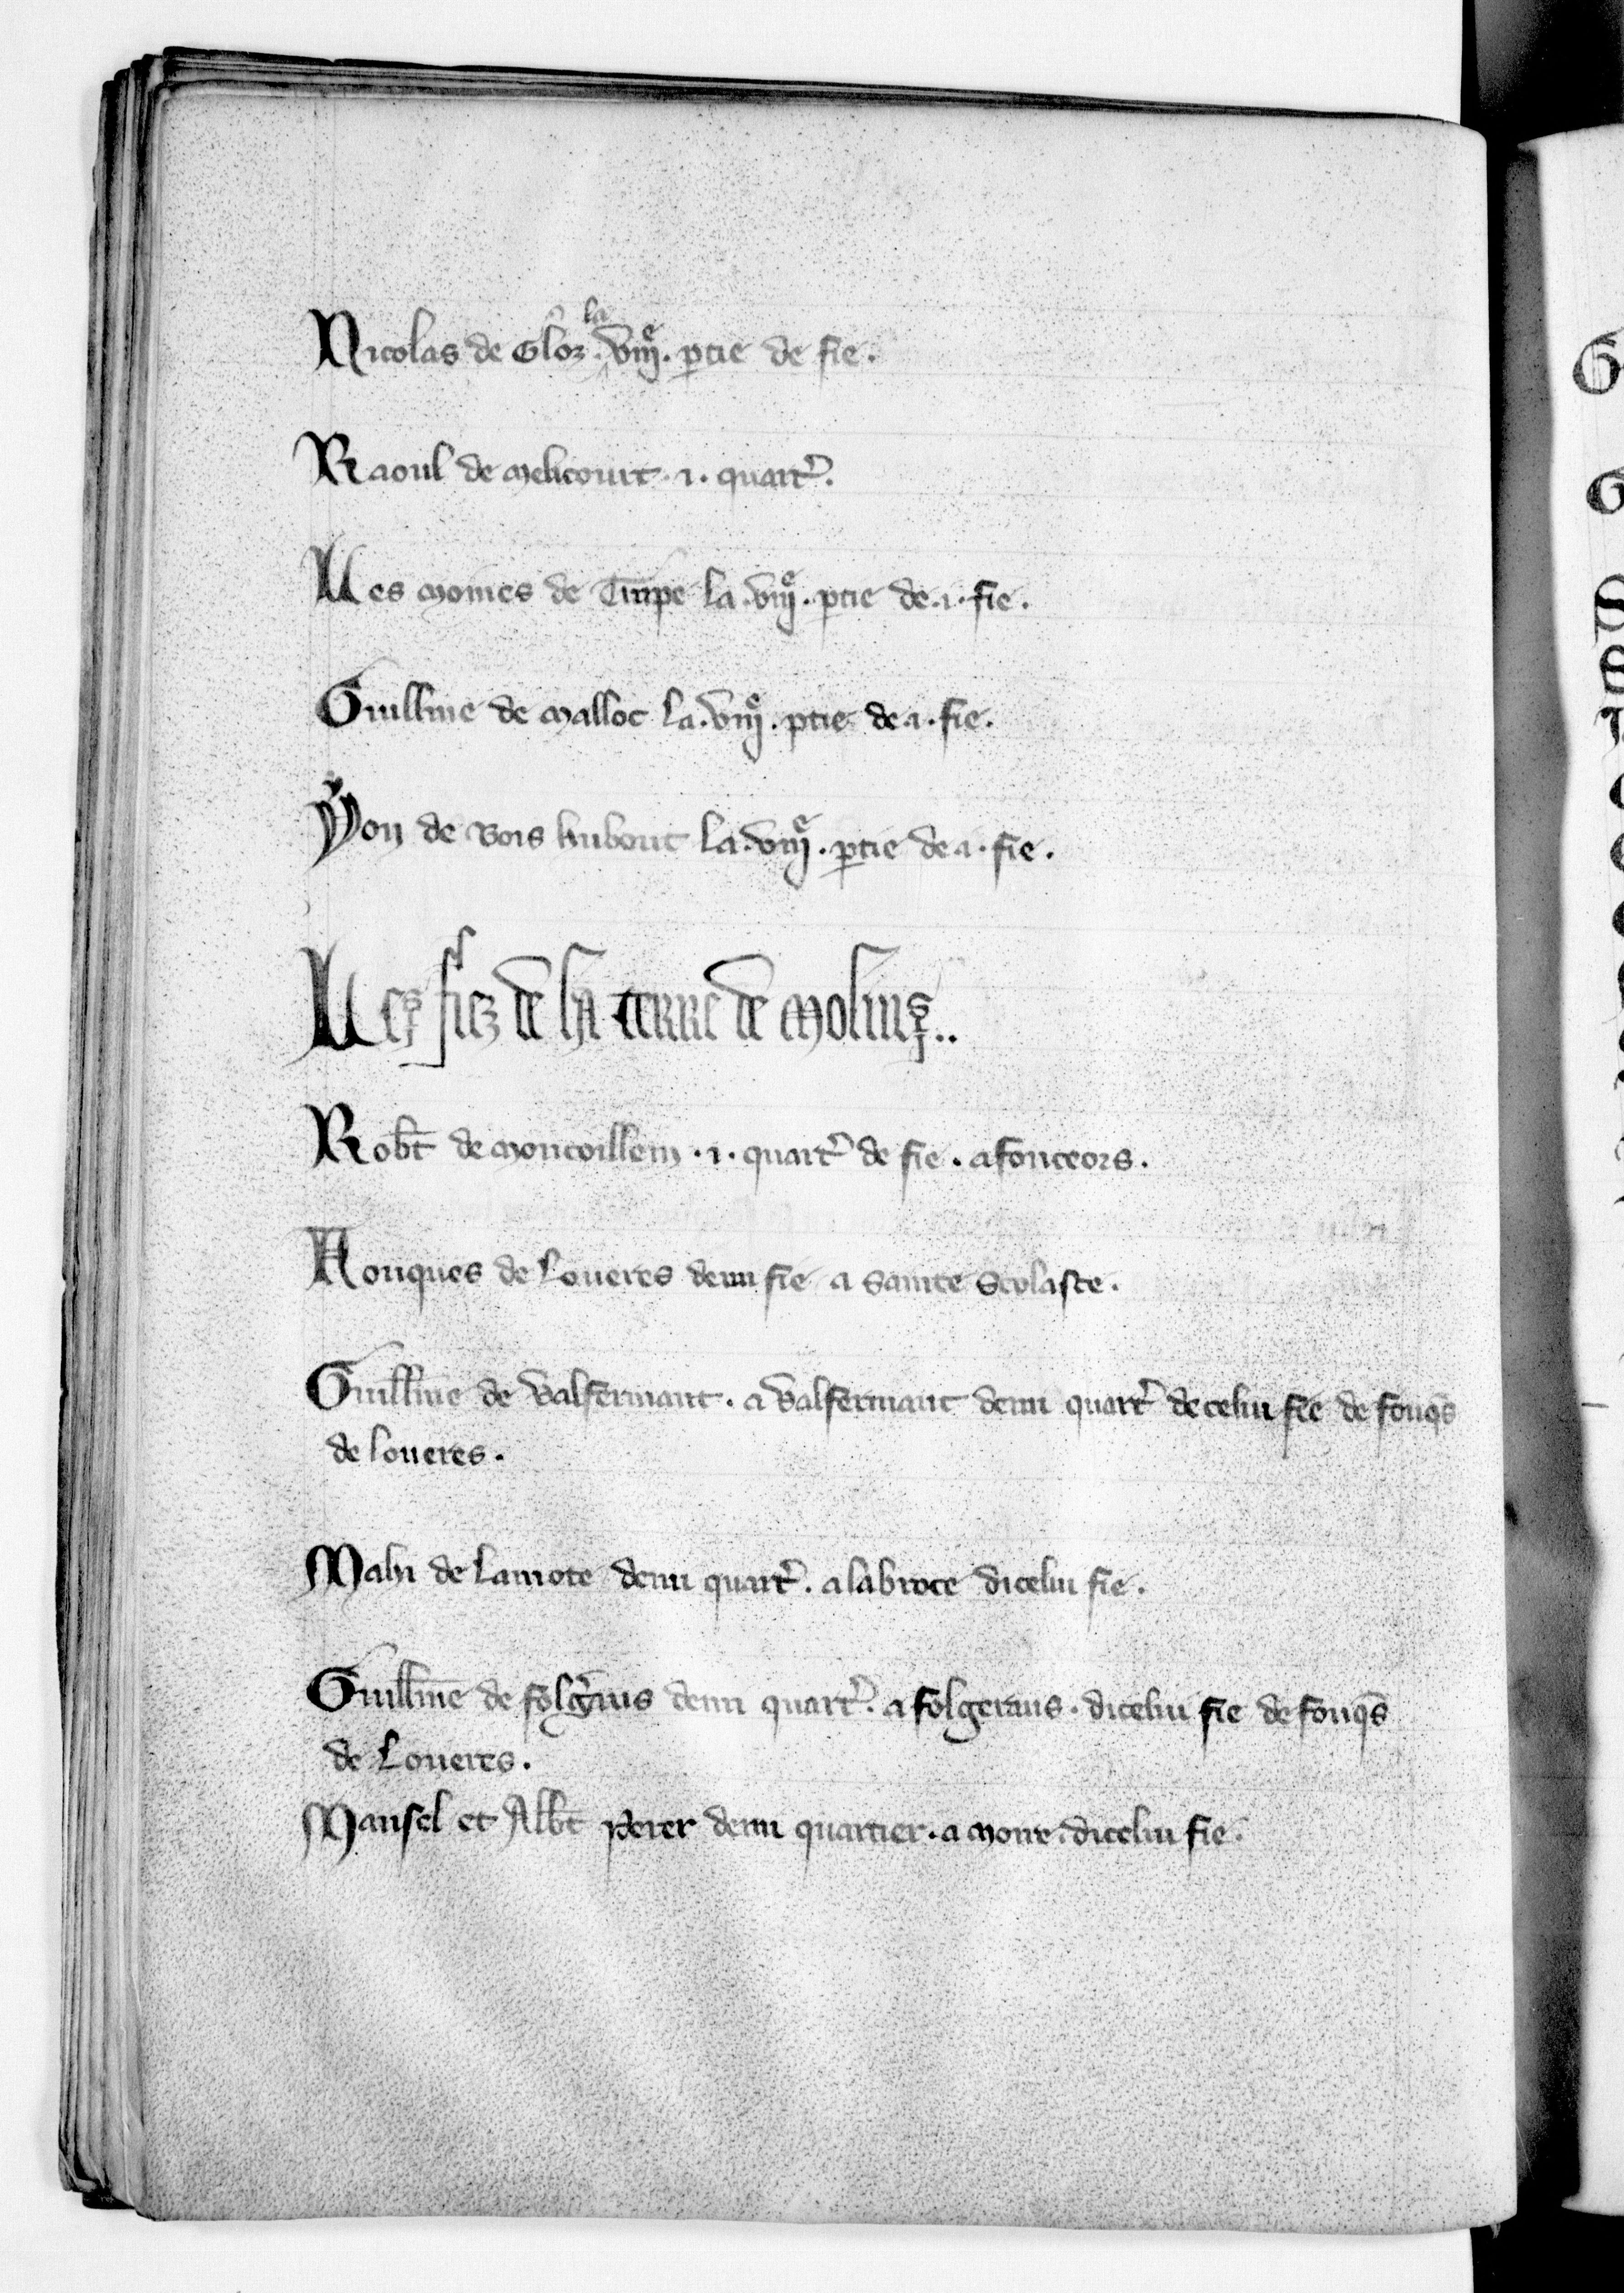 Nicolas de Gloz . la .viije. ꝑtie de fie .
Raoul de melicourt . i . quart̾ .
Les moines de Tiripe la .viije. ꝑtie de . i . fie .
Guill̄me de malloc la .viije. ꝑtie de . i . fie .
Yon de Bois hubout la .viije. ꝑtie de . i . fie .
Les fiez de la terre de molins ..
Rob̄t de moncoillein . i . quart̾ de fie . a fonteors .
Fouques de Loueres demi fie a sainte Scolasce .
Guill̄me de Valfermant . a valfermant demi quart̾ de celui fie de fouq̄s
de loueres .
Mahi de Lamote demi quart̾ . a labroce dicelui fie .
Guill̄me de folg̾ius demi quart̾ . a folgerius . dicelui fie de fouq̄s
de Loueres .
Mansel et Alb̄t perer demi quartier . a more . dicelui fie .